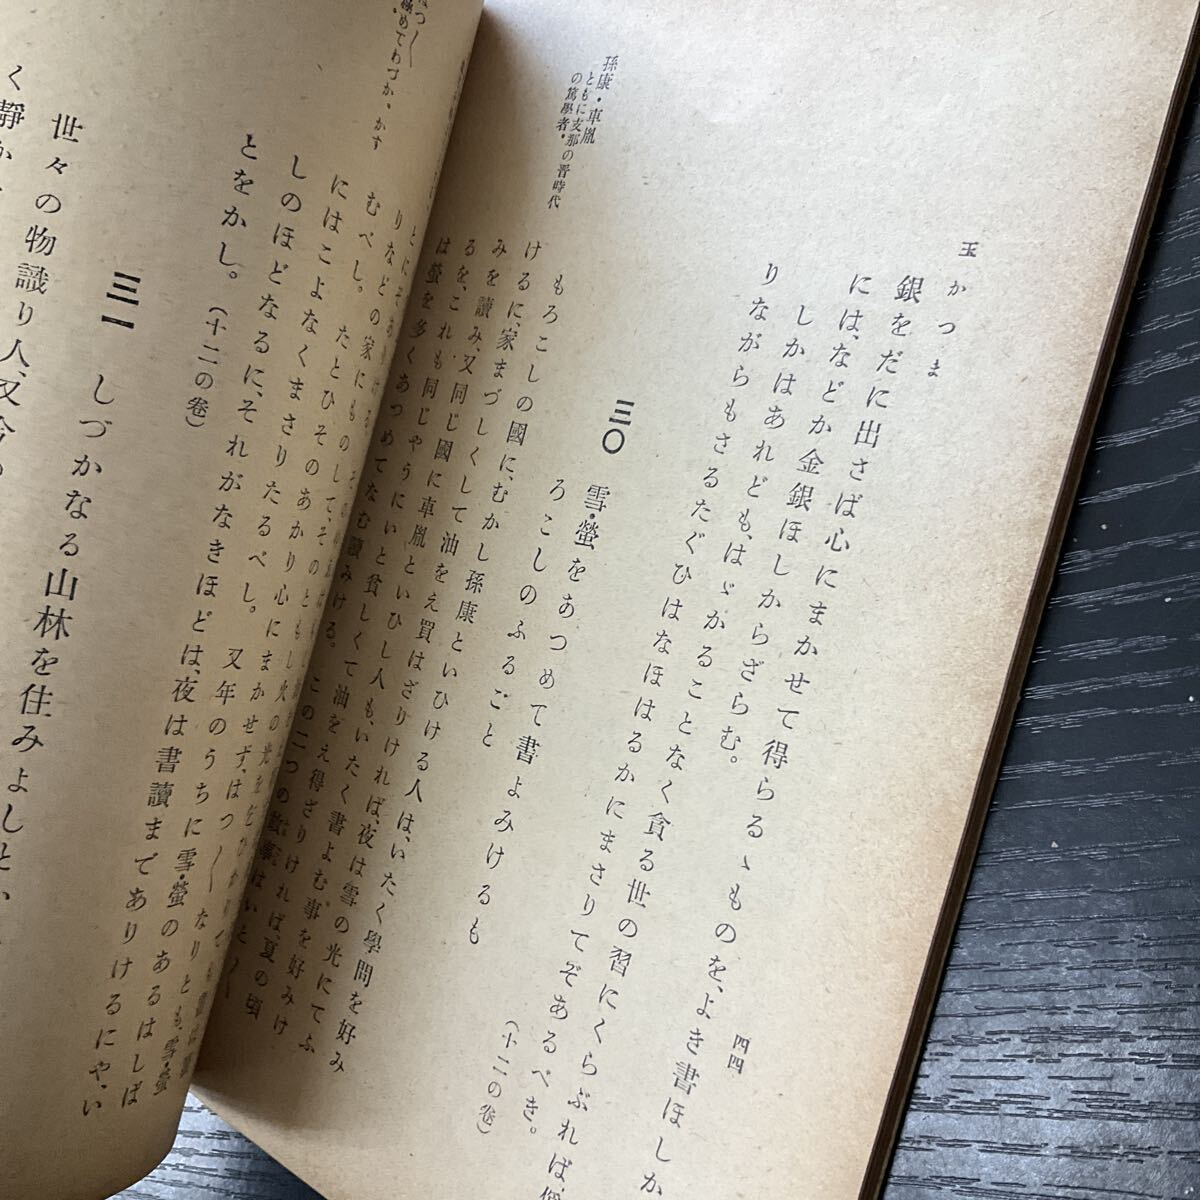 玉かつま
四四
銀をだに出さば心にまかせて得らるゝものを、よき書ほしか
には、などか金銀ほしからざらむ。
しかはあれども、はゞかることなく貪る世の習にくらぶれば、
りながらもさるたぐひはなほはるかにまさりてぞあるべき。
(十二の卷)
三〇 雪・螢をあつめて書よみけるも
ろこしのふるごと
もろこしの國に、むかし孫康といひける人は、いたく學問を好み
けるに、家まづしくして油をえ買はざりければ、夜は雪の光にてふ
みを讀み、又同じ國に車胤といひし人も、いたく書よむ事を好みけ
るを、これも同じやうにいと貧しくて油をえ得ざりければ、夏の頃
は螢を多くあつめてなむ讀みける。この二つの故事はいと〱
孫康・車胤
ともに支那の晋時代
の篤學者・
りなどの家にものして、そのともし火の光を
むべし。たとひそのあかり心にまかせず、はつ〱なりとも、雪・螢
にはこよなくまさりたるべし。又年のうちに雪・螢のあるはしば
しのほどなるに、それがなきほどは、夜は書讀までありけるにや、い
とをかし。(十二の卷)
はつ〱
極めてわづか・かす
三一 しづかなる山林を住みよしとい
世々の物識り人、又今の
く靜か